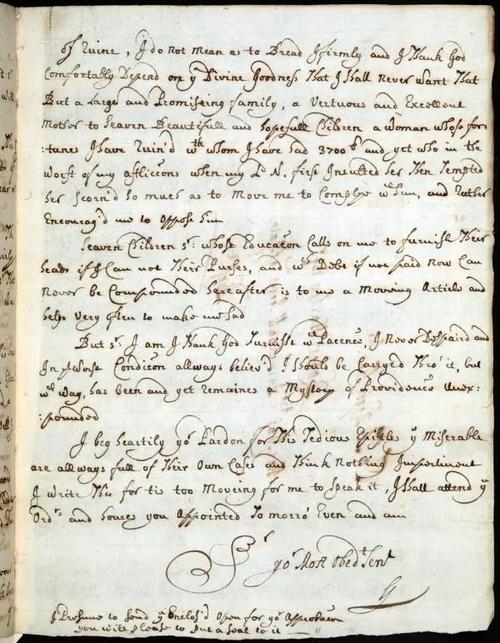 of Ruine, I do not mean as to Bread I firmly and I Thank God
Comfortably Depend on yͤ Divine Goodness That I shall never want That
But a Large and Promiseing family, a Vertuous and Excellent
Mother to Seaven Beautifull and hopefull Children a woman whose for
:tune I have Ruin'd wᵗʰ whom I have had 3700£ and yet who in the
Worst of my afflicc̃ons when my Lᵈ N. first Insulted her Then Tempted
her scorn'd so much as to Move me to Complye wᵗʰ him, and Rather
Encourag'd me to oppose him
Seaven Children Sʳ: whose Educac̃on Calls on me to furnish Their
heads if I Can not Their Purses, and wᶜʰ Debt if not paid Now Can
Never be Compounded hereafter is to me a Moveing Article and
helps Very often to make me sad
But Sʳ. I am I Thank God furnisht wᵗʰ Pacence, I Never Despaird and
In yͤ Worst Condic̃on allways believ'd I should be Carryed Thro' it, but
wᶜʰ Way, has been and yet remaines a Mystery of Providence Unex:
:pounded
I beg heartily yoʳ Pardon for This Tedious Epistle yͤ Miserable
are allways full of Their Own Cases and Think Nothing Impertinent
I write This for tis too Moveing for me to speak it, I shall attend yͤ
Ordʳˢ and houres you Appointed To morrō Even and am
Sʳ
yoʳ Most Obedᵗ Servᵗ
I Presume to send yͤ Enclos'd Open for yoʳ Approbac̃on
you will Please to put a Seal to it